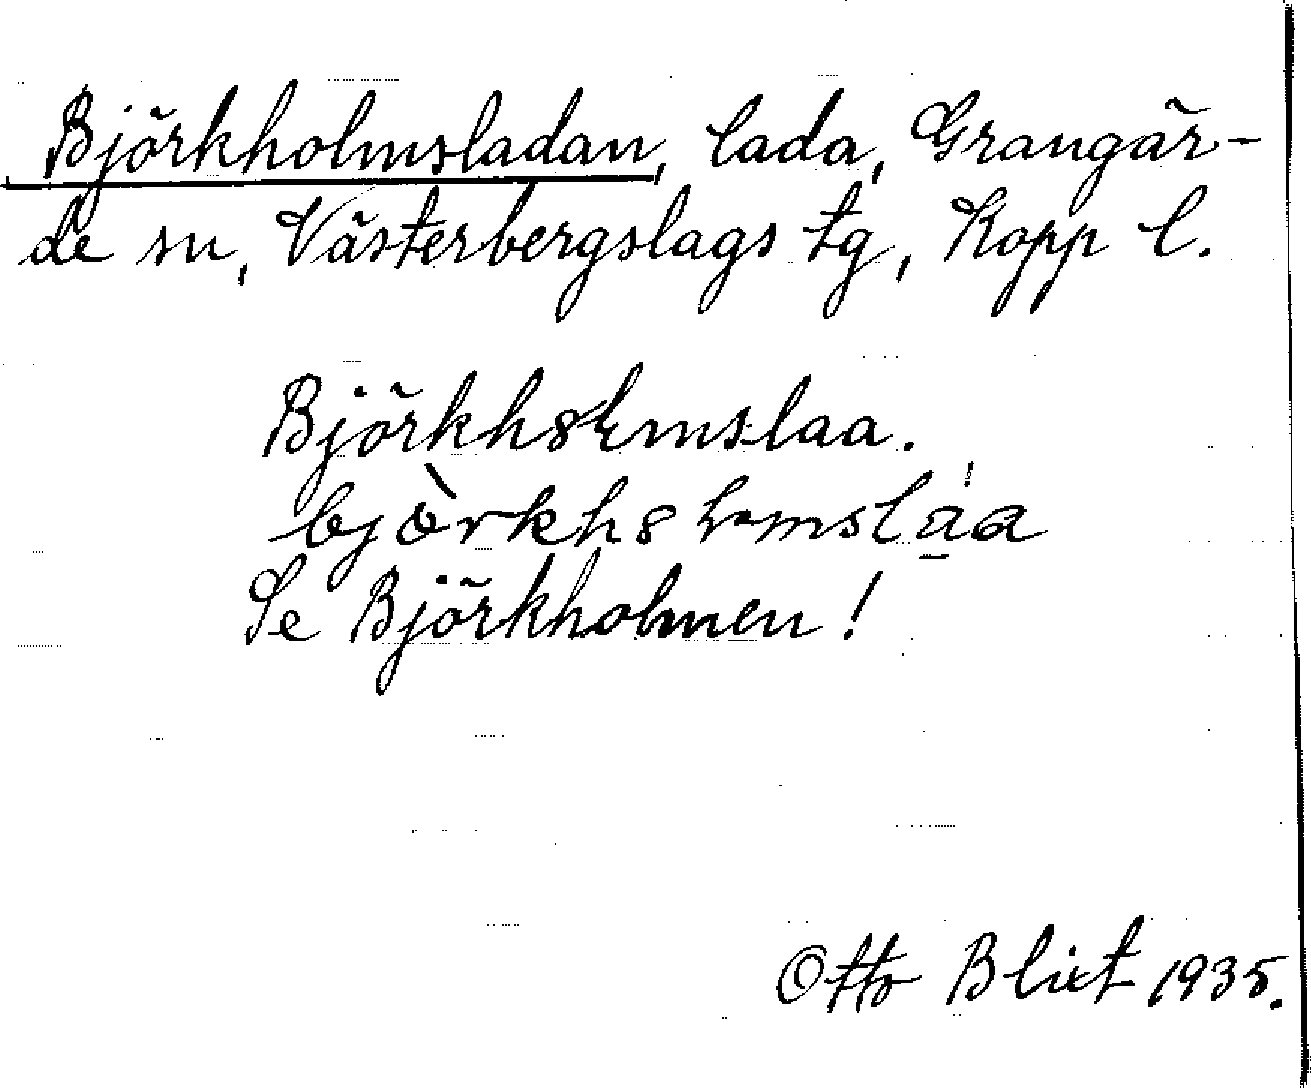 Björkholmsladan, lada, Grangär-
de sn, Västerbergslags tg, Kopp l.
Björkh8ɫmslaa.
Se Björkholmen!
Otto Blixt 1935.